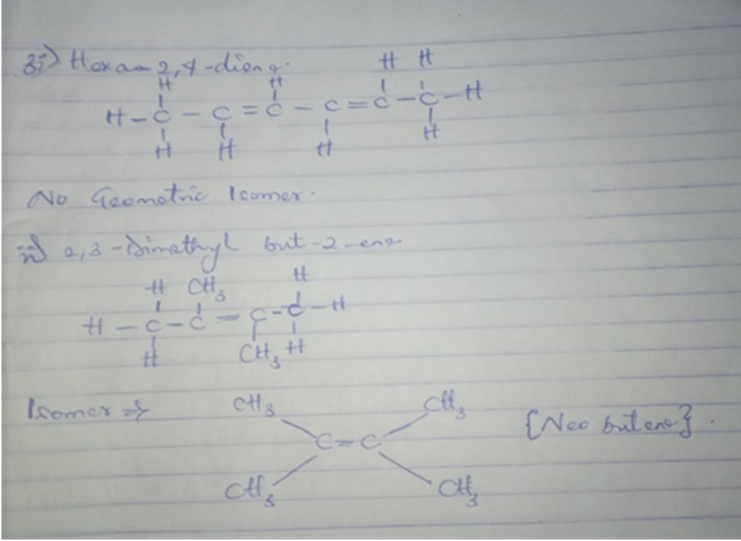 3i) Hexa-2,4-diene.
H H H H
H-C-C=C-C=C-C-H
H H H H
No Geometric Isomer.
ii) 2,3-Dimethyl but-2-ene
H CH3 H
H-C-C=C-C-H
H CH3 H
Isomer ⇒ CH3 CH3
C=C [Neo butene].
CH3 CH3